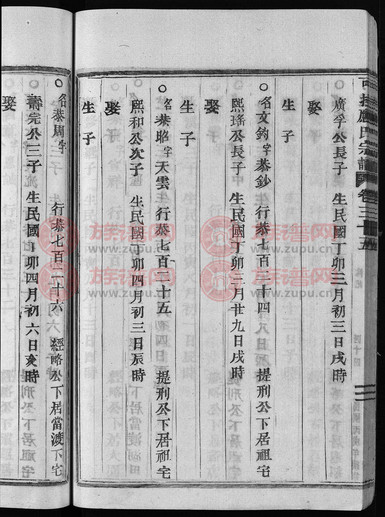 廣孚公長子 生民國丁卯三月初三日戌時
娶
生 子
名文鈞 字泰鈔 行泰七百二十四 提刑公下居祖宅
熙瑤公長子 生民國丁卯三月廿九日戌時
娶
生 子
名泰昭 字天雲 行泰七百二十五 提刑公下居祖宅
熙和公次子 生民國丁卯四月初三日辰時
娶
生 子
名泰周 字 行泰七百二十六 經略公下居當渡下宅
壽完公三子 生民國丁卯四月初六日亥時
娶
族譜网
www.zupu.cn